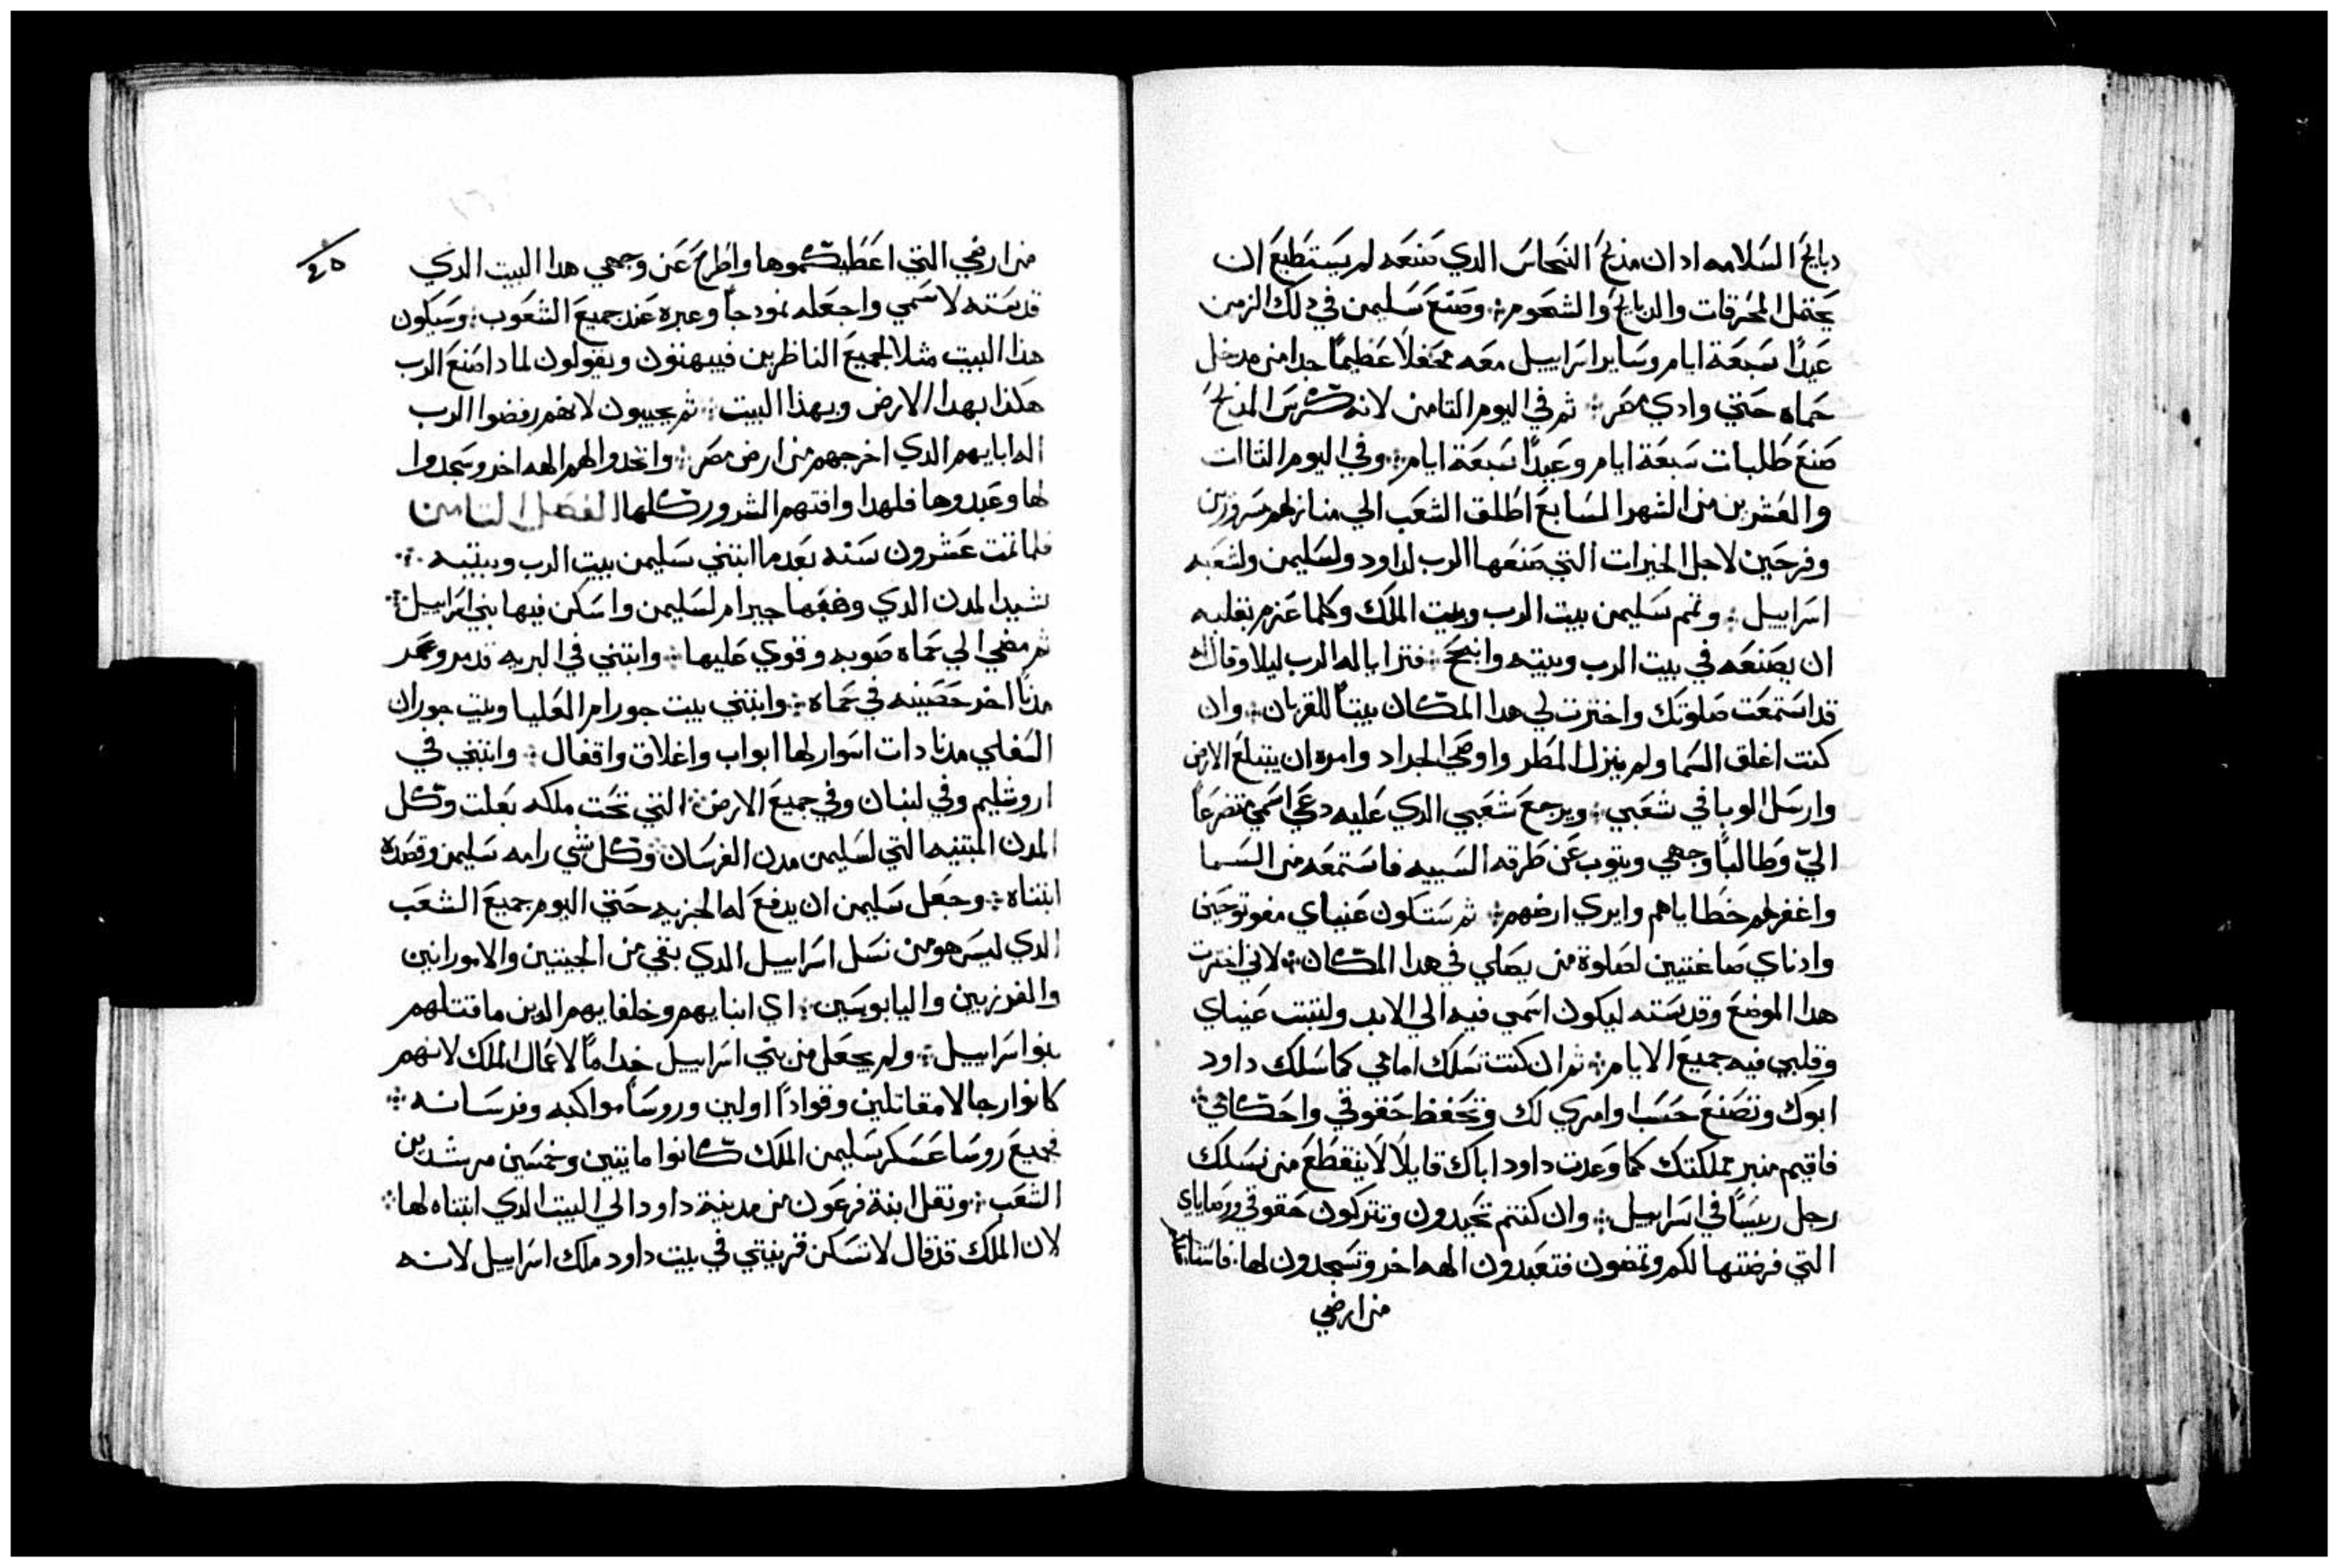 دبايح السلامه اد ان مذبح النحاس الدي صنعه لم يستطيع ان
يحتمل المحرقات والدبايح والشحوم܀ وصنع سليمن في دلك الزمن
عيدًا سبعة ايام وساير اسراييل معه محفلاً عظيمًا جدا من مدخل
حماه حتي وادي مصر܀ ثم في اليوم التامن لانه كرس المذبح
صنع طلبات سبعة ايام وعيدًا سبعة ايام܀ وفي اليوم التالت
والعشرين من الشهر السابع اطلق الشعب الي منازلهم مسرورين
وفرحين لاجل الخيرات التي صنعها الرب لداود ولسليمن ولشعبه
اسراييل܀ وتمم سليمن بيت الرب وبيت الملك وكلما عزم بقلبه
ان يصنعه في بيت الرب وبيته وانجح܀ فترايا له الرب ليلا وقال له
قد استمعت صلوتك واخترت لي هدا المكان بيتًا للقربان܀ وان
كنت اغلق السما ولم ينزل المطر واوصي الجراد وامره ان يبتلع الارض
وارسل الوبا في شعبي܀ ويرجع شعبي الدي عليه دعي اسمي متضرعًا
اليّ وطالبًا وجهي ويتوب عن طرقه السييه فاستمعه من السما
واغفر لهم خطاياهم وابري ارضهم܀ ثم ستكون عيناي مفتوحتين
وادناي صاغتيين لصلوة من يصلي في هدا المكان܀ لاني اخترت
هدا الموضع وقدسته ليكون اسمي فيه الي الابد ولتبت عيناي
وقلبي فيه جميع الايام܀ ثم ان كنت تسلك امامي كما سلك داود
ابوك وتصنع حسب اوامري لك وتحفظ حقوقي واحكامي܀
فاقيم منبر مملكتك كما وعدت داود اباك قايلاً لا ينقطع من نسلك
رجل رييسًا في اسراييل܀ وان كنتم تحيدون وتتركون حقوقي ووصاياي
التي فرضتها لكم وتمضون فتعبدون الهه اخر وتسجدون لها. فاستاصلكم
من ارضي
٤٥
من ارضي التي اعطيتكموها واطرح عن وجهي هدا البيت الدي
قدسته لاسمي واجعله نمودجًا وعبره عند جميع الشعوب܀ وسيكون
هذا البيت مثلا لجميع الناظرين فيبهتون ويقولون لمادا صنع الرب
هكذا بهدا الارض وبهذا البيت܀ ثم يجيبون لانهم رفضوا الرب
اله اباييهم الدي اخرجهم من ارض مصر܀ واتخدوا لهم الهه اخر وسجدوا
لها وعبدوها فلهدا وافتهم الشرور كلها الفصل التامن
فلما تمت عشرون سنه بعد ما ابتني سليمن بيت الرب وبيته܀
شيد المدن الدي وهبها حيرام لسليمن واسكن فيها بني اسراييل܀
ثم مضي الي حماه صوبه وقوي عليها܀ وابتني في البريه تدمر وعمر
مدنًا اخر حصينه في حماه܀ وابتني بيت حورام العليا وبيت حوران
السفلي مدنا دات اسوار لها ابواب واغلاق واقفال܀ وابتني في
اروشليم وفي لبنان وفي جميع الارض܀ التي تحت ملكه بعلت وكل
المدن المبتنيه التي لسليمن مدن الفرسان وكل شي رامه سليمن وقصده
ابتناه܀ وجعل سليمن ان يدفع له الجزيه حتي اليوم جميع الشعب
الدي ليس هو من نسل اسراييل الدي بقي من الحيتيين والامورانين
والفرزيين واليابوسين܀ اي ابناييهم وخلفاييهم الدين ما قتلهم
بنو اسراييل܀ ولم يجعل من بني اسراييل خدامًا لاعمال الملك لانهم
كانوا رجالا مقاتلين وقوادًا اولين وروسًا مواكبه وفرسانه܀
فجميع روسا عسكر سليمن الملك كانوا مايتين وخمسين مرشدين
الشعب܀ ونقل ابنة فرعون من مدينة داود الي البيت الدي ابتناه لها܀
لان الملك قد قال لا تسكن قرينتي في بيت داود ملك اسراييل لانه